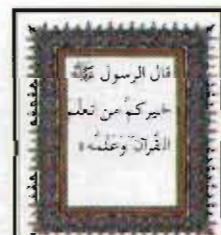 قال الرسول ﷺ
« خيركم من تعلم
القرآن وَعَلَّمَه »